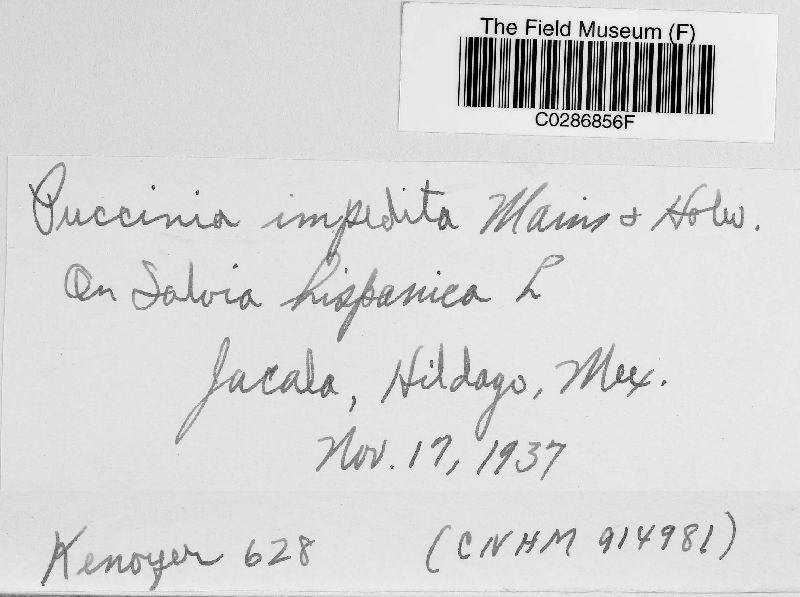 The Field Museum (F)
C0286856F
Puccinia impedita Mains & Holw.
On Salvia hispanica L
Jacala, Hildago, Mex.
Nov. 17, 1937
Kenoyer 628 (CNHM 914981)